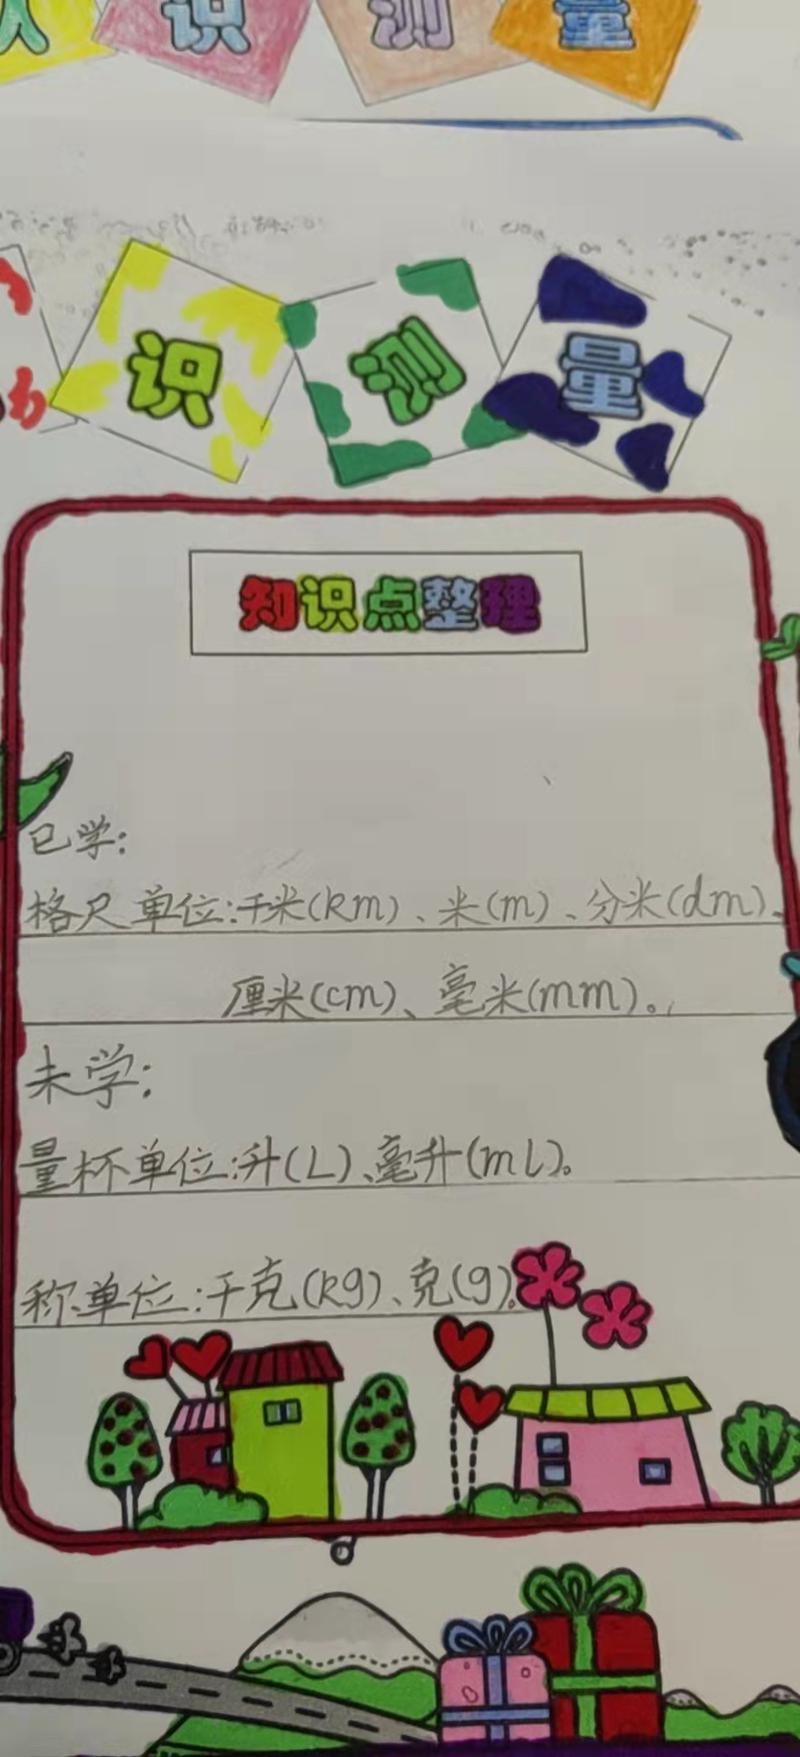 识 测 量
识 测 量
知识点整理
已学:
格尺单位:千米(km)、米(m)、分米(dm)、
厘米(cm)、毫米(mm)。
未学:
量杯单位:升(L)、毫升(mL)。
称单位:千克(kg)、克(g)。